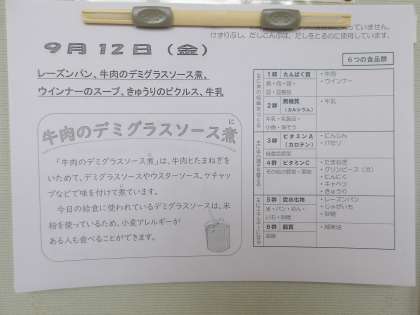 いません。
けずりぶし、だしこんぶは、だしをとるのに使用しています。
９月１２日（金）
レーズンパン、牛肉のデミグラスソース煮、
ウインナーのスープ、きゅうりのピクルス、牛乳
に
牛肉のデミグラスソース煮
に
「牛肉のデミグラスソース煮」は、牛肉とたまねぎを
いためて、デミグラスソースやウスターソース、ケチャッ
プなどで味を付けて煮ています。
今日の給食に使われているデミグラスソースは、米
粉を使っているため、小麦アレルギーが
ある人も食べることができます。
６つの食品群
１群 たんぱく質
魚・肉・卵・
豆・豆製品
・牛肉
・ウインナー
２群 無機質
（カルシウム）
牛乳・乳製品・
小魚・海そう
・牛乳
３群 ビタミンA
（カロテン）
緑黄色野菜
・にんじん
・パセリ
４群 ビタミンC
その他の野菜・果物
・たまねぎ
・グリンピース（冷）
・にんにく
・キャベツ
・きゅうり
５群 炭水化物
米・パン・めん・
いも・砂糖
・レーズンパン
・じゃがいも
・砂糖
６群 脂質
油脂